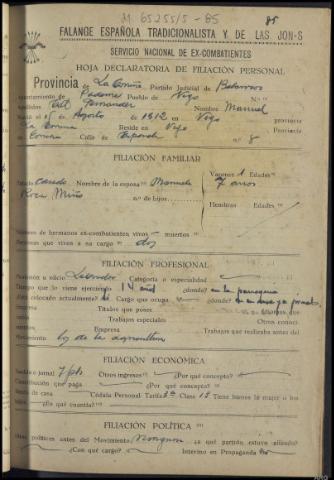 M. 65255/5 - 85
85
FALANGE ESPAÑOLA TRADICIONALISTA Y DE LAS JON-S
SERVICIO NACIONAL DE EX-COMBATIENTES
HOJA DECLARATORIA DE FILIACIÓN PERSONAL
Provincia de La Coruña Partido Judicial de Betanzos
Ayuntamiento de Paderne Pueblo de Vigo N.º
Apellidos Fernandez Nombre Manuel
Nació el Agosto de 1912 en Vigo provincia
La Coruña Reside en Vigo Provincia
Coruña Calle de n.º 8
FILIACIÓN FAMILIAR
Estado casado Nombre de la esposa Manuela Varones 1 Edades
Roca Miño n.º de hijos 7 años
Hembras Edades
Número de hermanos ex-combatientes, vivos — muertos
Personas que viven a su cargo dos
FILIACIÓN PROFESIONAL
Profesión u oficio Labrador Categoría o especialidad
Tiempo que lo viene ejerciendo 14 años ¿dónde? en la parroquia
¿Está colocado actualmente? Cargo que ocupa ¿dónde?
Títulos que posee
Trabajos especiales Otros conoci-
Empresa Trabajos que realizaba antes del
Movimiento de la agricultura
FILIACIÓN ECONÓMICA
Sueldo o jornal 7 pts Otros ingresos ¿Por qué concepto?
Contribución que paga ¿Por qué concepto?
de casa Cédula Personal Tarifa Clase 13 Tiene bienes la mujer o los
hijos ¿En qué cuantía?
FILIACIÓN POLÍTICA
Filiaciones políticas antes del Movimiento Ninguna ¿a qué partido estuvo afiliado?
¿Con qué cargo? Intervino en Propaganda no